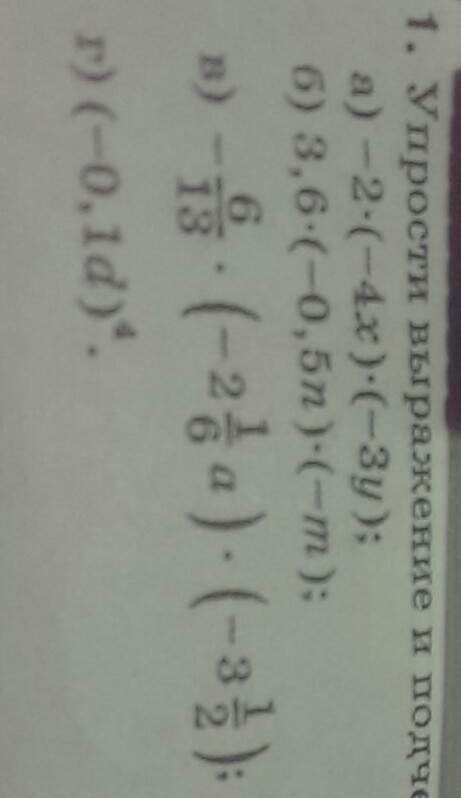 1. Упрости выражение и подче
а) −2·(−4x)·(−3y);
б) 3,6·(−0,5n)·(−m);
в) −6/13 · (−2 1/6 a) · (−3 1/2);
г) (−0,1d)⁴.